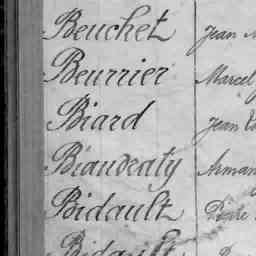 Beuchet Jean
Beurrier Marcel
Biard Jean
Biaudeaty Arman
Bidault
Bidault